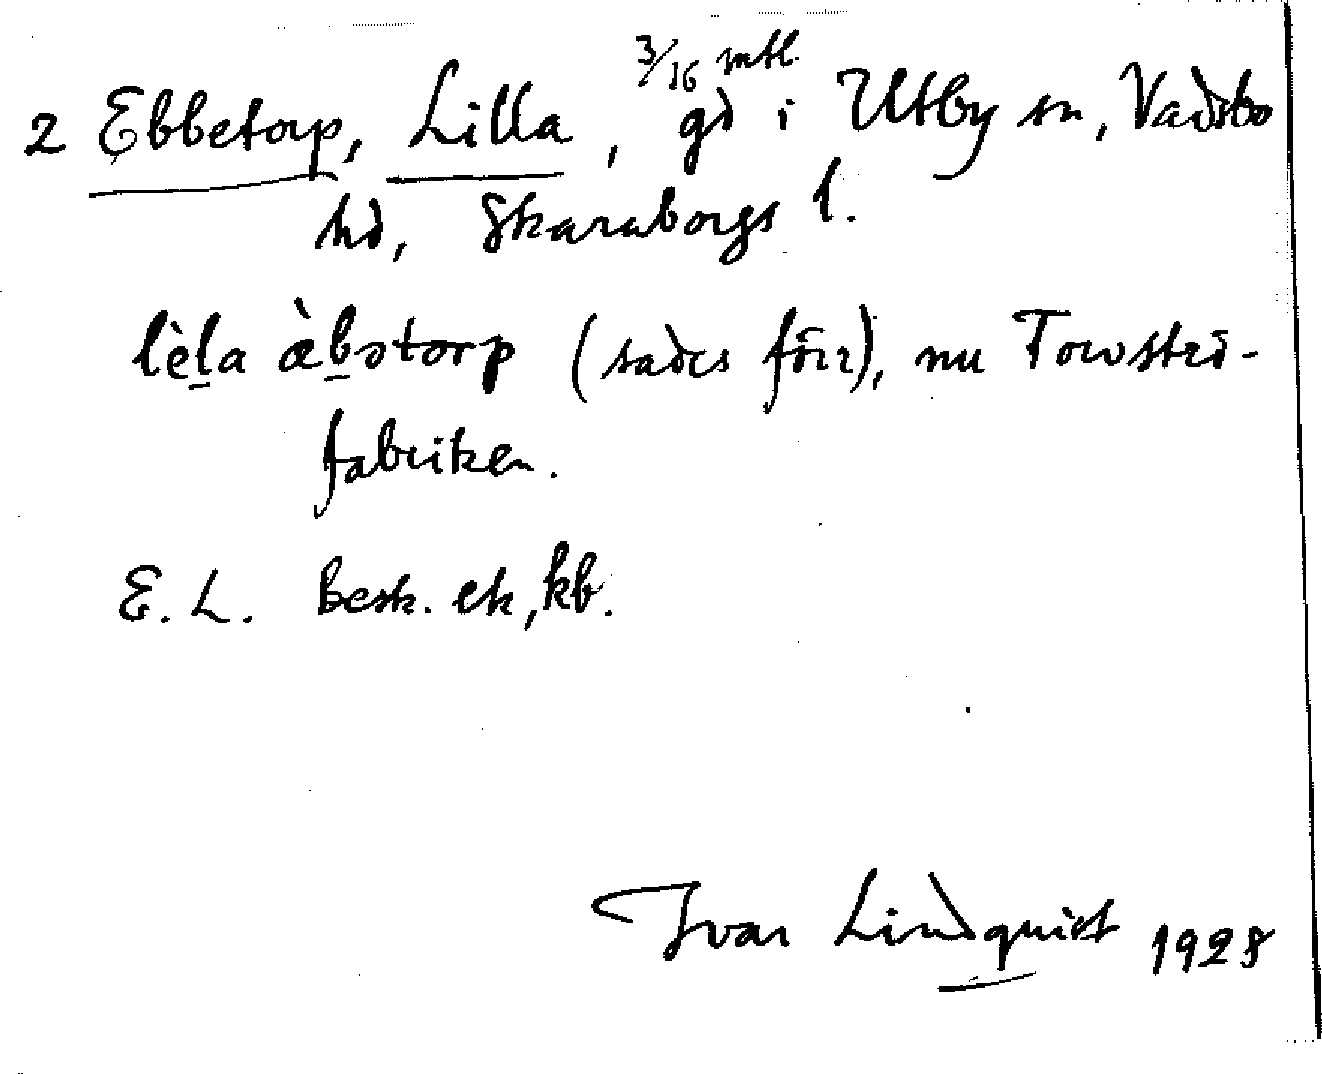 2 Ebbetorp, Lilla, 3/16 mtl. gd i Utby sn, Vadsbo
hd, Skaraborgs l.
lèl̠a æ̀b̠ətorp (sades förr), nu Towströ-
fabriken.
E. L. Besk. ek, kb.
Ivar Lindquist 1928